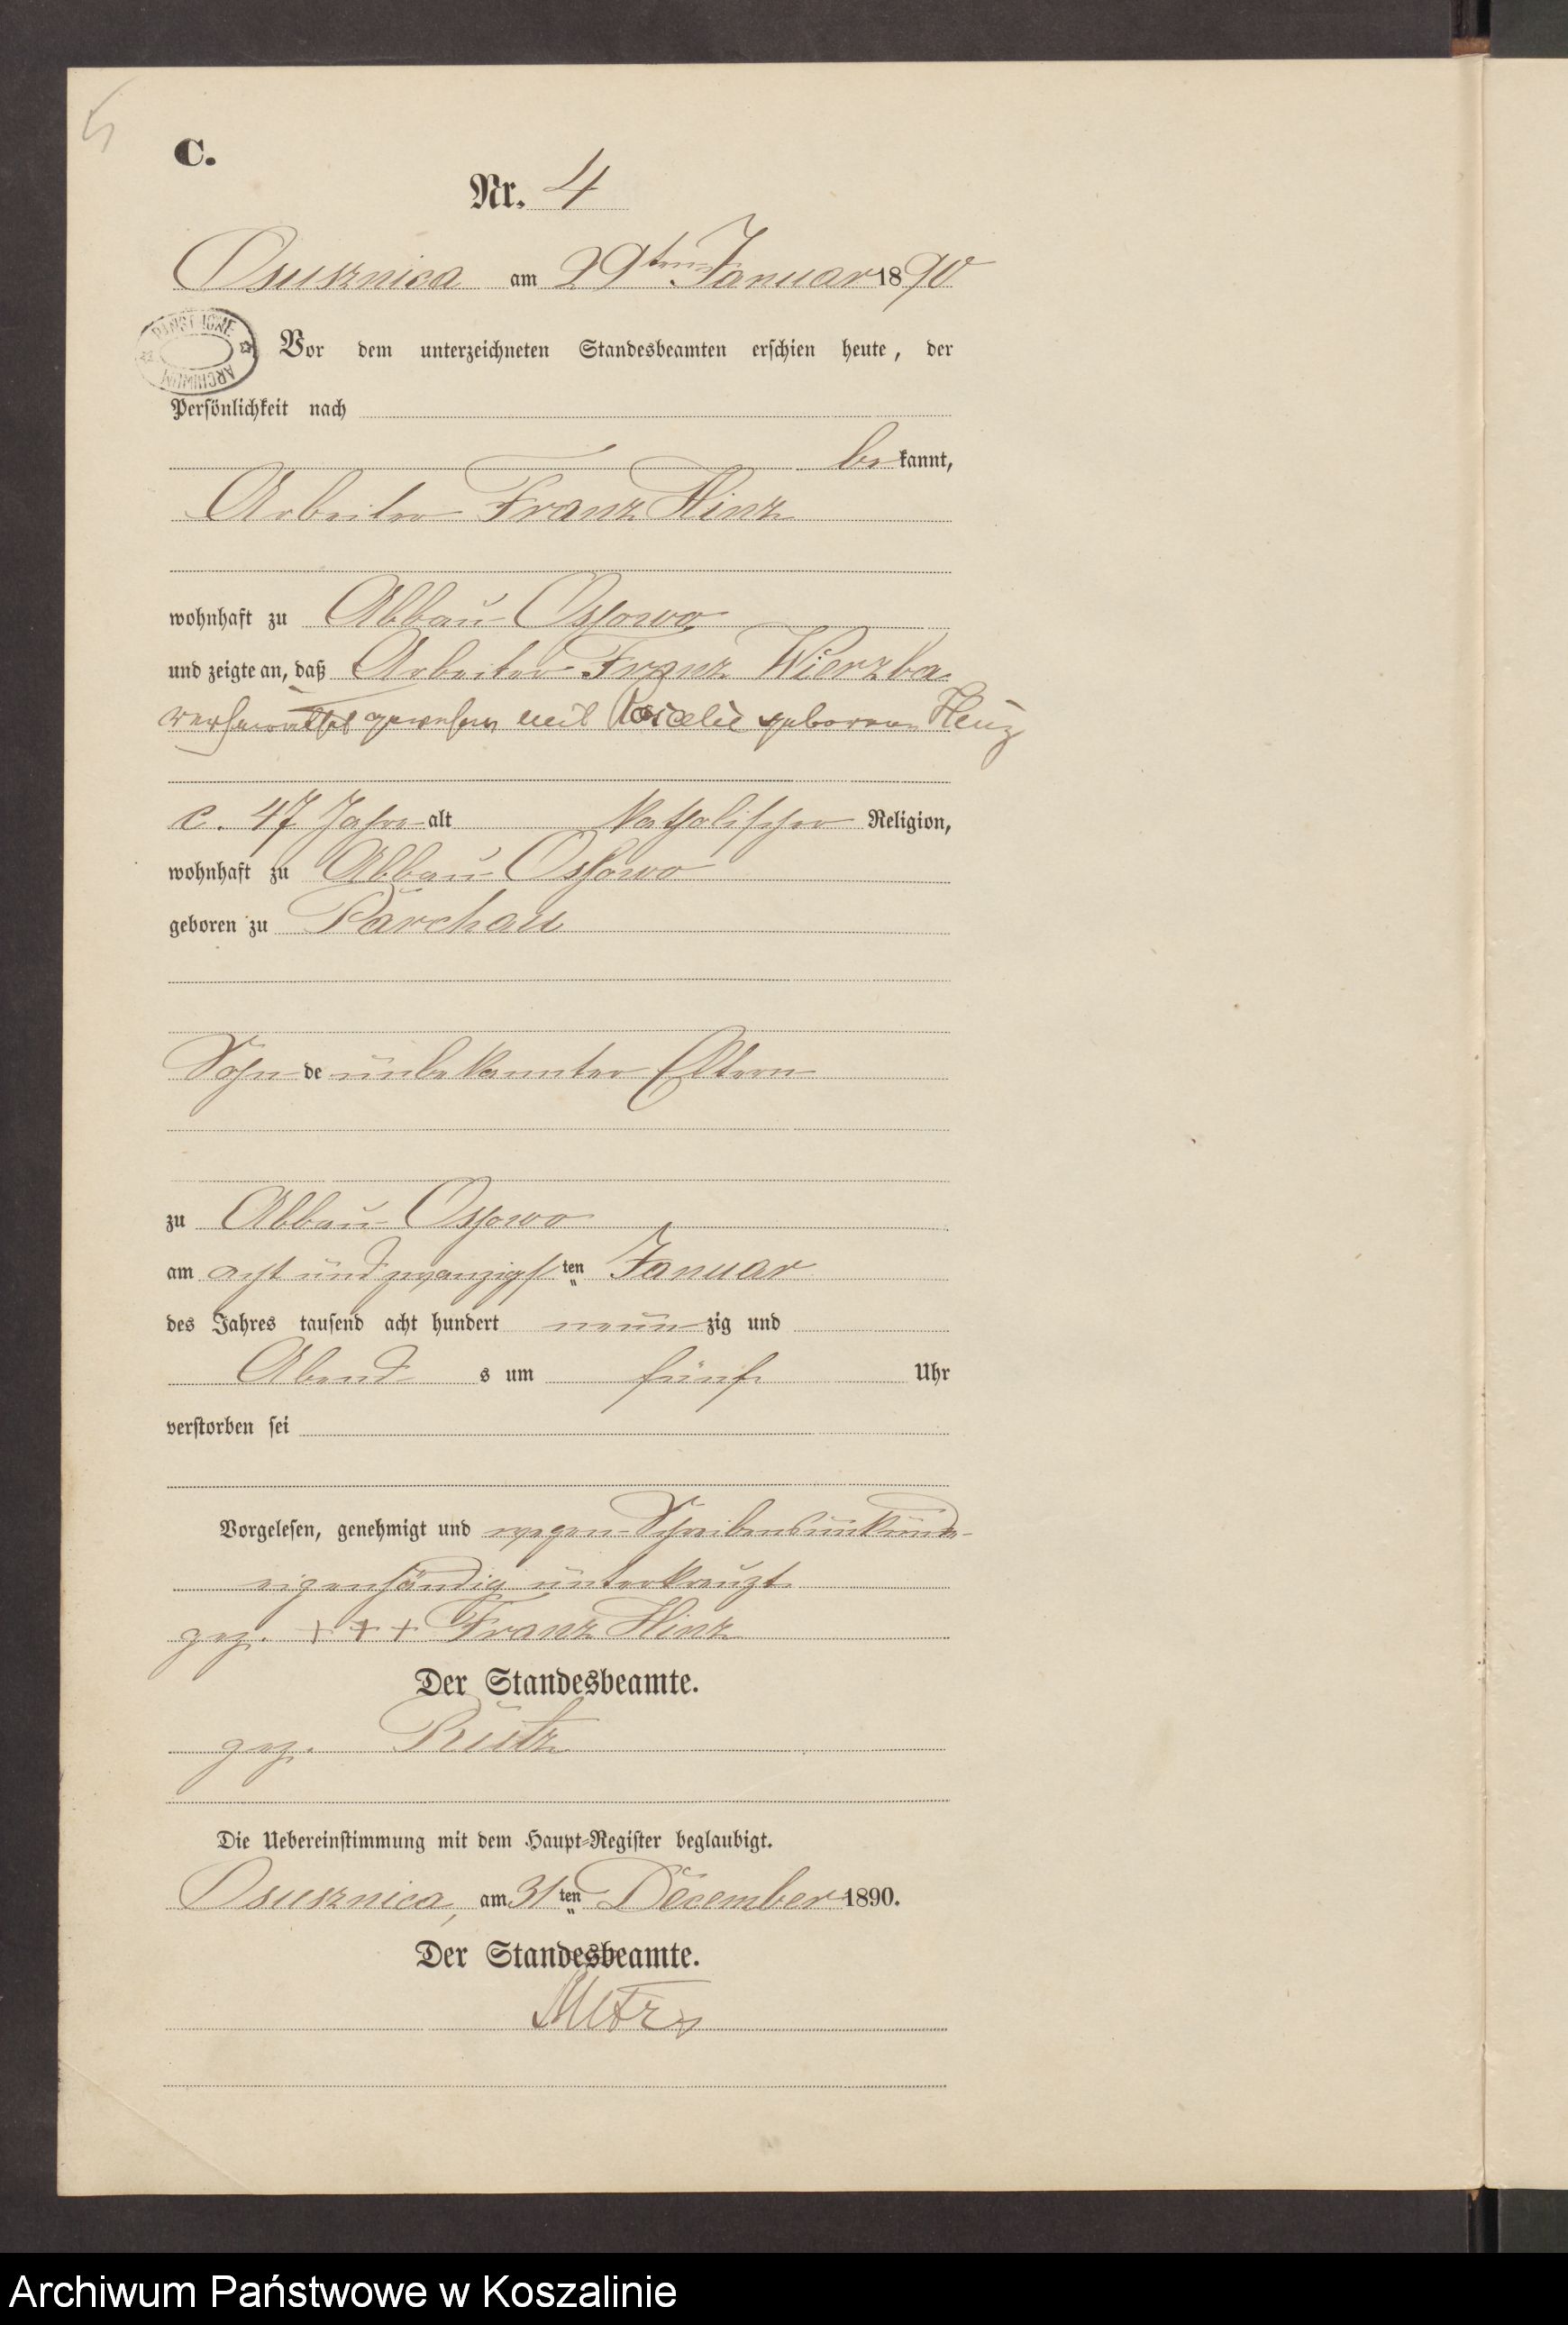 C.
Nr. 4
Osusznica am 29ten Januar 1890
PAŃSTWOWE ARCHIWUM
Vor dem unterzeichneten Standesbeamten erschien heute, der
Persönlichkeit nach
bekannt,
Arbeiter Franz Hinz
wohnhaft zu Abbau Ossowo
und zeigte an, daß Arbeiter Franz Wierzba
verheirathet gewesen mit Rosalie geborene Heinz
c. 47 Jahre alt katholischer Religion,
wohnhaft zu Abbau Ossowo
geboren zu Parchau
Sohn de unbekannter Eltern
zu Abbau Ossowo
am acht und zwanzigsten Januar
des Jahres tausend acht hundert neunzig und
Abends um fünf Uhr
verstorben sei
Vorgelesen, genehmigt und wegen Schreibensunkunde
eigenhändig unterkreuzt
gez. +++ Franz Hinz
Der Standesbeamte.
gez.
Die Uebereinstimmung mit dem Haupt-Register beglaubigt.
Osusznica, am 31ten December 1890.
Der Standesbeamte.
Archiwum Państwowe w Koszalinie